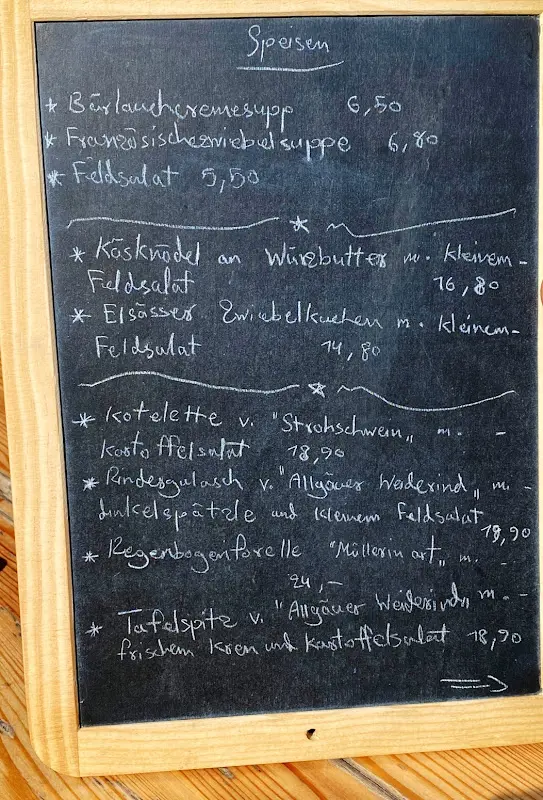 Speisen
* Bärlauchcremesupp 6,50
* Französischezwiebelsuppe 6,80
* Feldsalat 5,50
* Käsknödel an Würzbutter m. kleinem-
Feldsalat 16,80
* Elsässer Zwiebelkuchen m. kleinem-
Feldsalat 14,80
* Kotelette v. "Strohschwein„ m. -
Kartoffelsalat 18,90
* Rindergulasch v. "Allgäuer Weiderind„ m. -
dinkelspätzle und kleinem Feldsalat 18,90
* Regenbogenforelle "Müllerin art„ m. -
24,-
* Tafelspitz v. "Allgäuer Weiderind„ m. -
frischem Kren und Kartoffelsalat 18,90